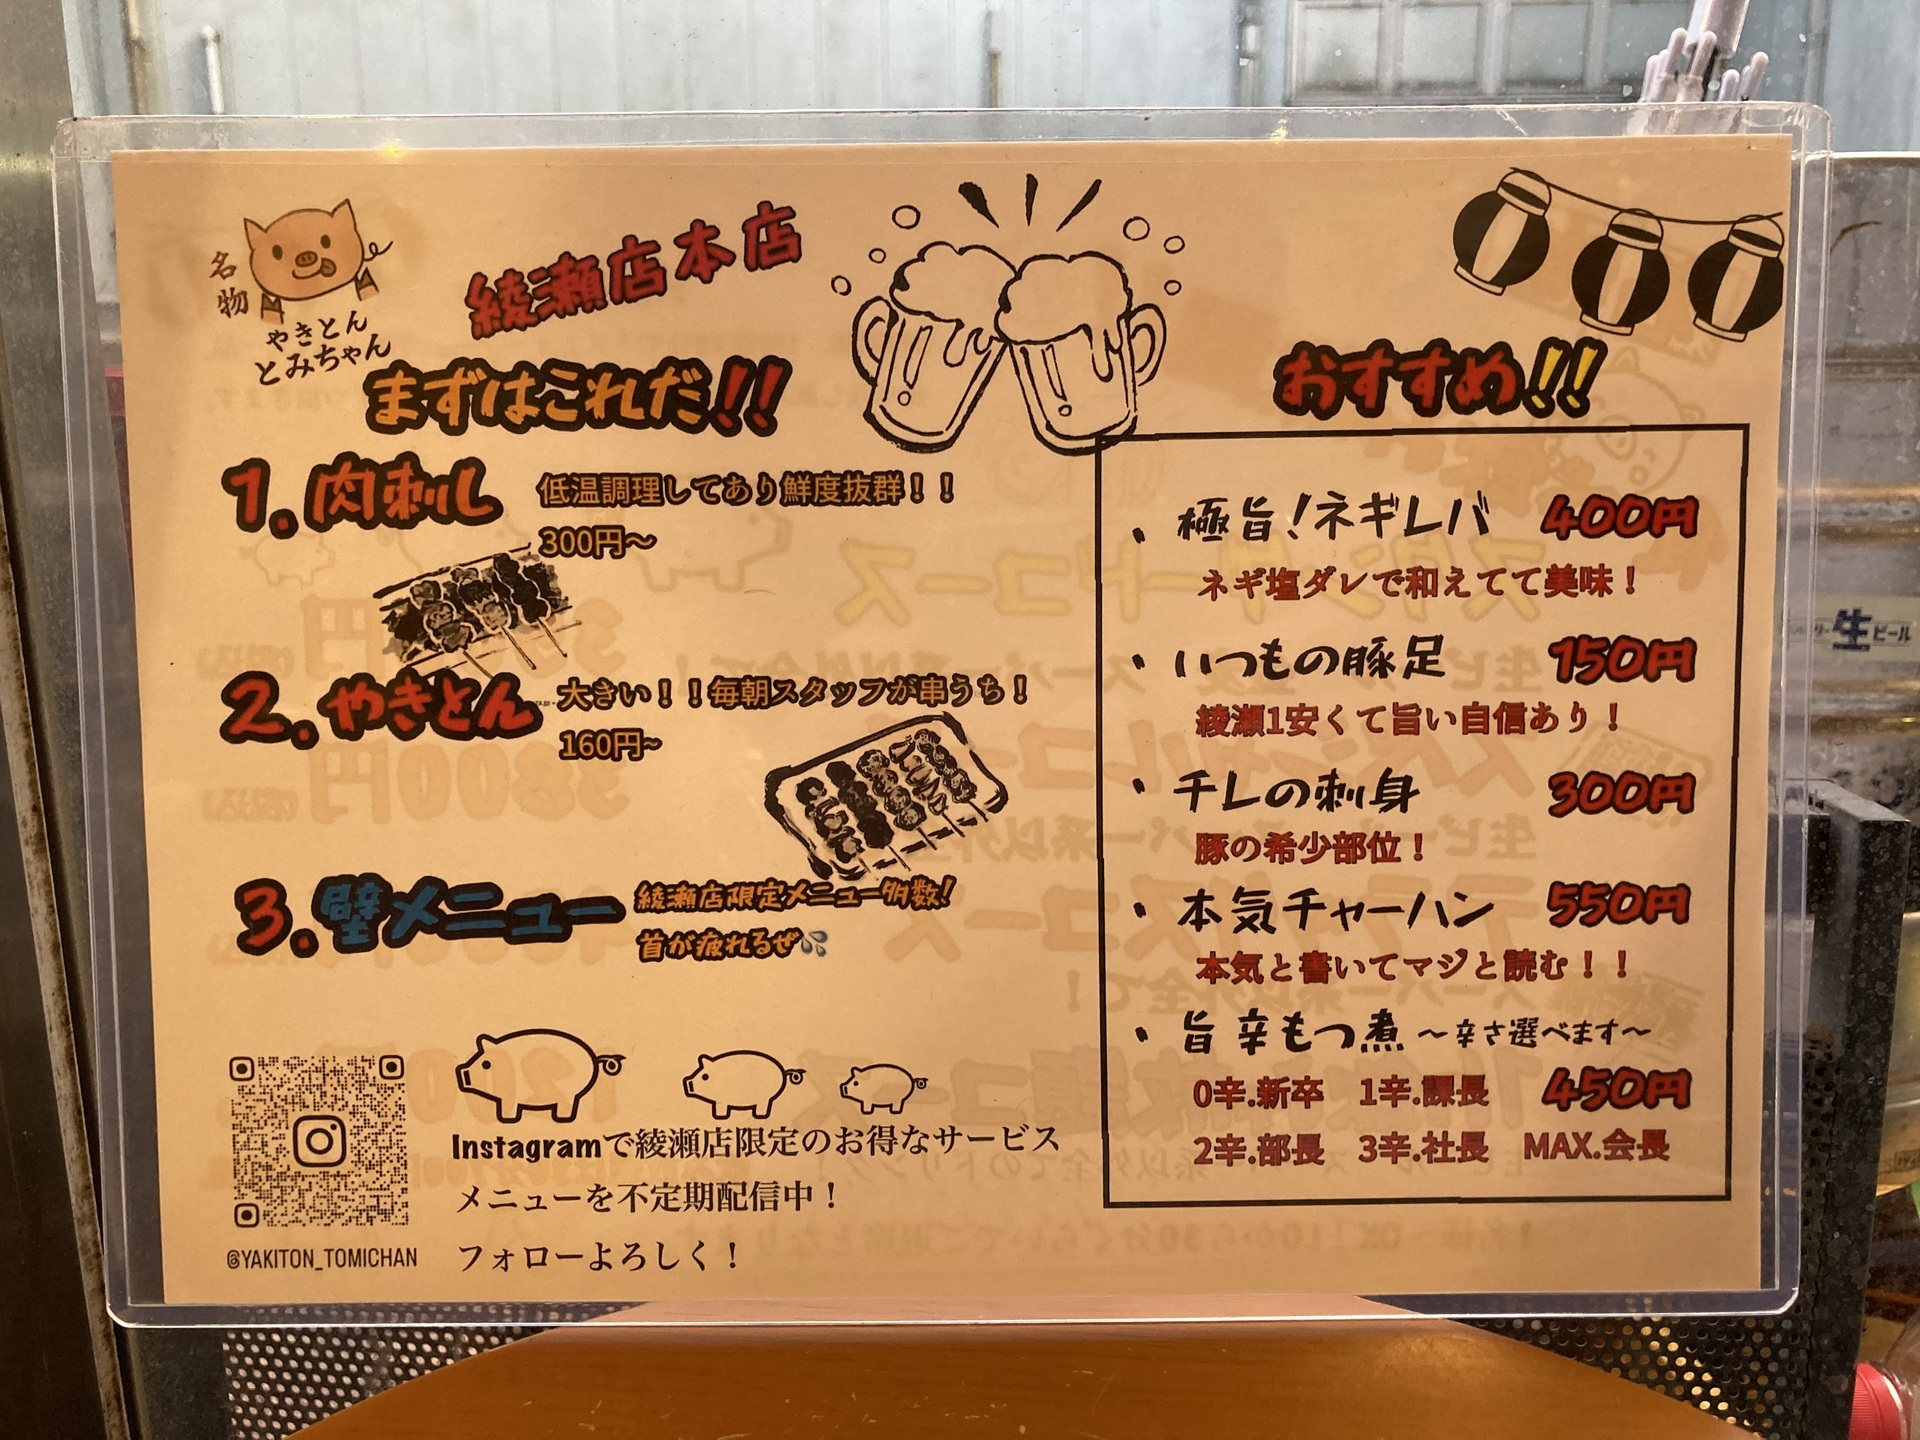 名物
やきとん
とみちゃん
綾瀬店本店
まずはこれだ!!
1.肉刺し
低温調理してあり鮮度抜群！！
300円〜
2.やきとん
大きい！！毎朝スタッフが串うち！
160円~
3.壁メニュー
綾瀬店限定メニュー多数!
首が疲れるぜ💦
Instagramで綾瀬店限定のお得なサービス
メニューを不定期配信中！
フォローよろしく！
@YAKITON_TOMICHAN
おすすめ!!
・極旨!ネギレバ 400円
ネギ塩ダレで和えてて美味！
・いつもの豚足 150円
綾瀬1安くて旨い自信あり！
・チレの刺身 300円
豚の希少部位！
・本気チャーハン 550円
本気と書いてマジと読む！！
・旨辛もつ煮 〜辛さ選べます〜
0辛.新卒 1辛.課長 450円
2辛.部長 3辛.社長 MAX.会長
生ビール